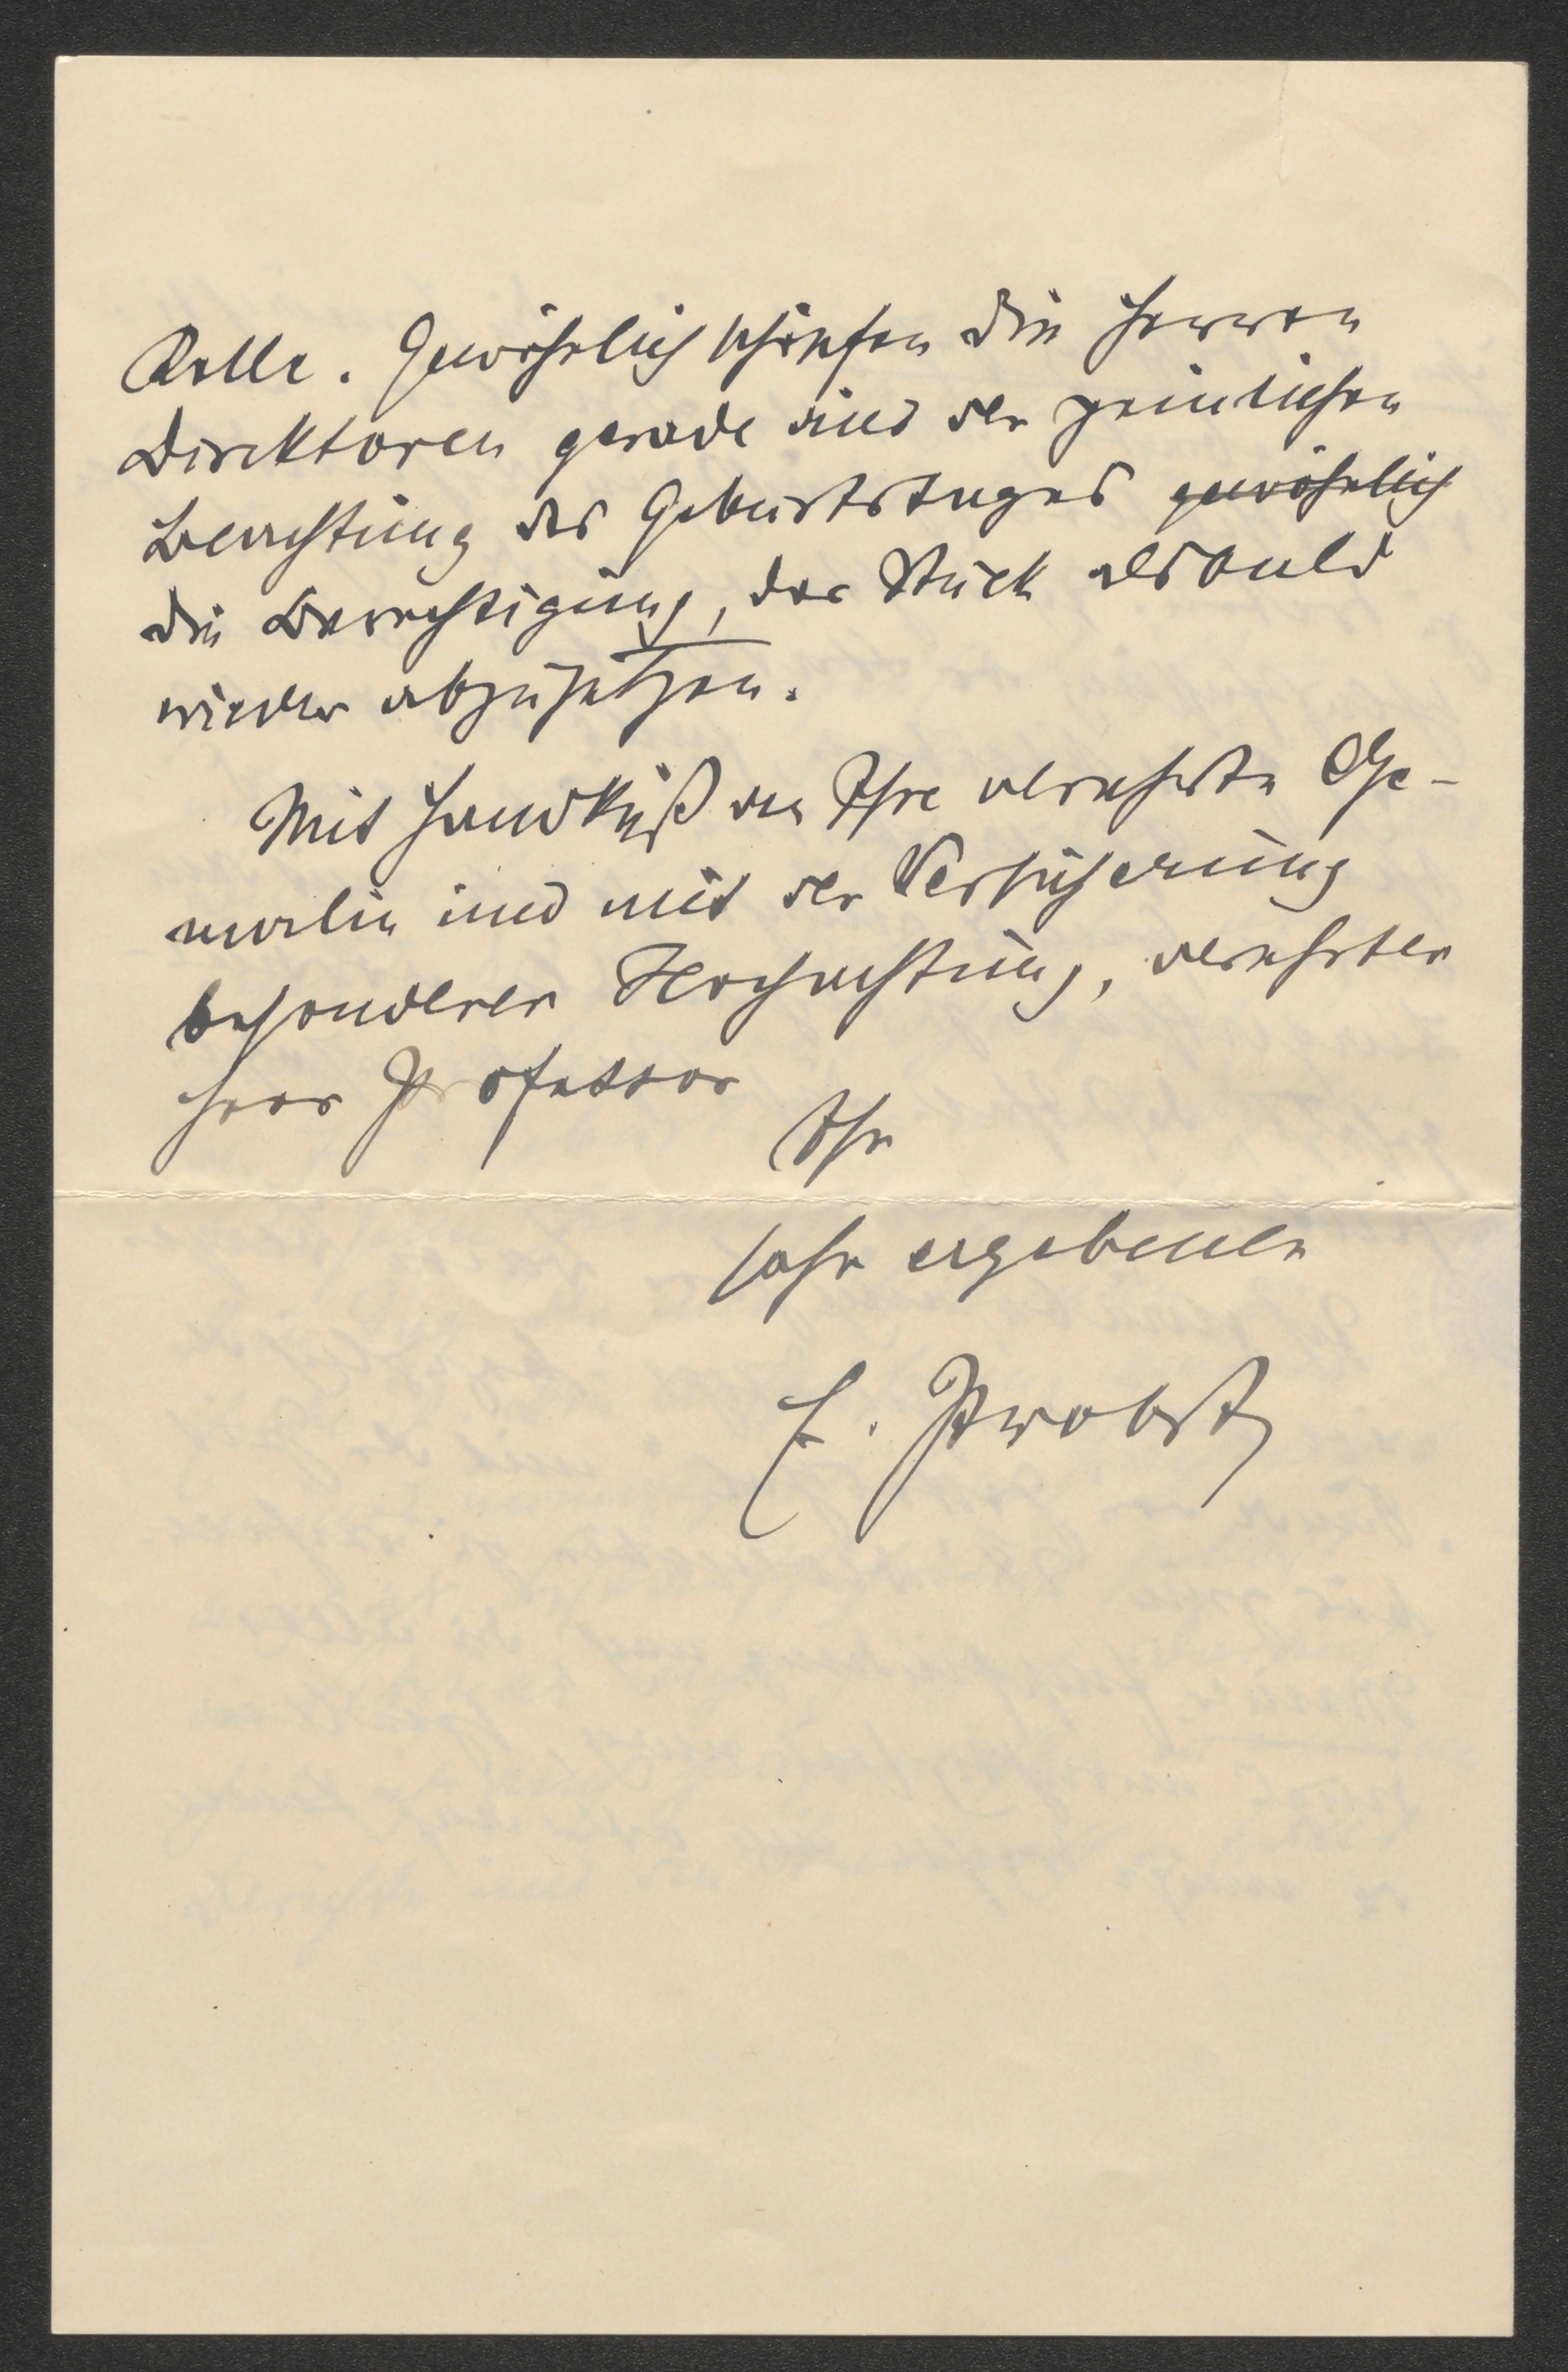 Rolle. Gewöhnlich schöpfen die Herren
Direktoren gerade aus der peinlichen
Beachtung des Geburtstages gewöhnlich
die Berechtigung, das Stück alsbald
wieder abzusetzen.
Mit Handkuß an Ihre verehrte Ge-
malin und mit der Versicherung
besonderer Hochachtung, verehrter
Herr Professor
Ihr
sehr ergebener
E. Probst